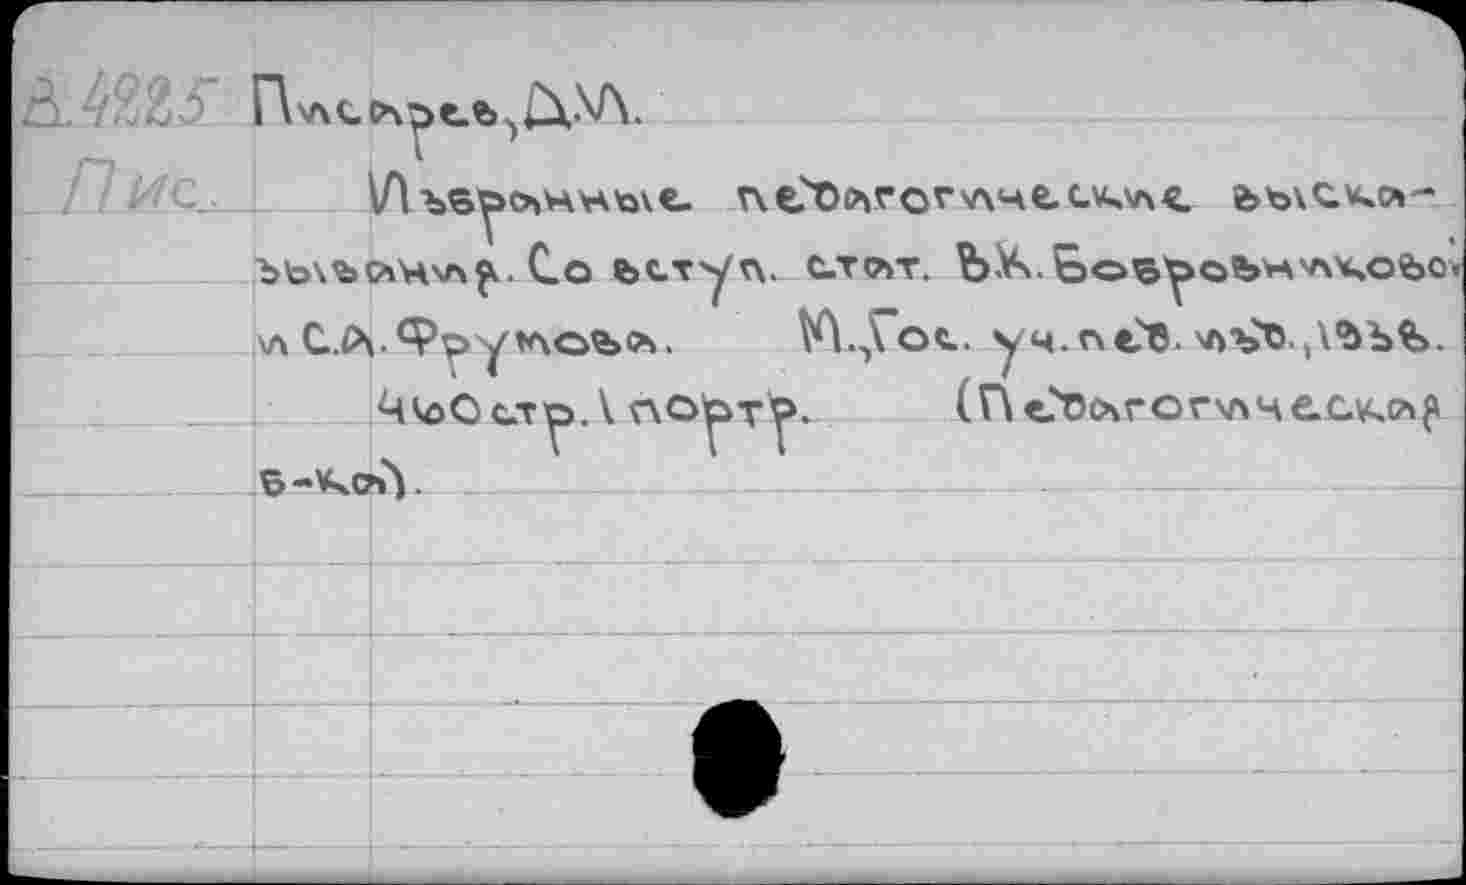 А.4225 Писарев, Д.И.
Пис. Избранные педагогические выска-
зывания. Со вступ. стат. В.К. Бобровниковой
и С.А. Фрумова. М., Гос. уч. пед. изд., 1938.
460 стр. 1 портр. (Педагогическая
б-ка).